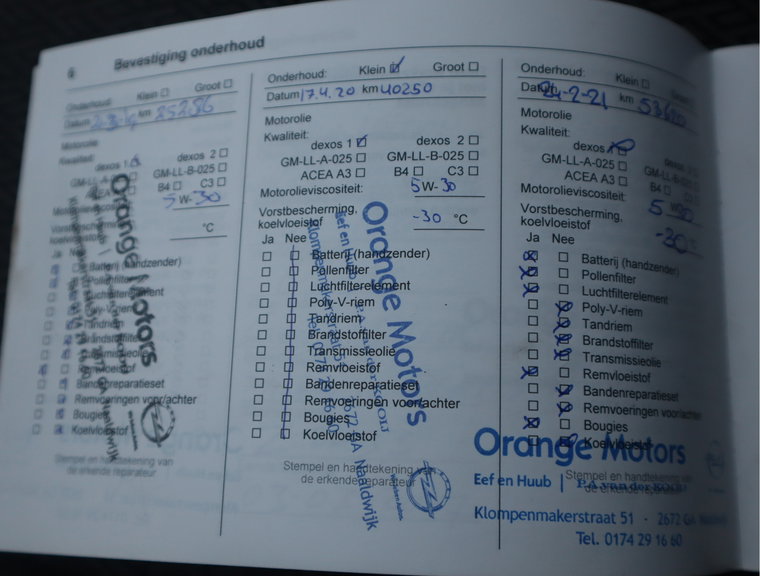 6 Bevestiging onderhoud
Onderhoud: Klein ☐ Groot ☐
Datum km 25256
Motorolie
Kwaliteit:
dexos 1 ☑ dexos 2 ☐
GM-LL-A-025 ☐ GM-LL-B-025 ☐
ACEA B4 ☐ C3 ☐
5 W-30
Vorstbescherming,
°C
Ja
Batterij (handzender)
Pollenfilter
Luchtfilterelement
Poly-V-riem
Tandriem
Brandstoffilter
Remvloeistof
Bandenreparatieset
Remvoeringen voor/achter
Bougies
Koelvloeistof
Stempel en handtekening van
de erkende reparateur
Orange Motors
Onderhoud: Klein ☑ Groot ☐
Datum 17.4.20 km 40250
Motorolie
Kwaliteit:
dexos 1 ☑ dexos 2 ☐
GM-LL-A-025 ☐ GM-LL-B-025 ☐
ACEA A3 ☐ B4 ☐ C3 ☐
Motorolieviscositeit: 5W-30
Vorstbescherming,
koelvloeistof -30 °C
Ja Nee
Batterij (handzender)
Pollenfilter
Luchtfilterelement
Poly-V-riem
Tandriem
Brandstoffilter
Transmissieolie
Remvloeistof
Bandenreparatieset
Remvoeringen voor/achter
Bougies
Koelvloeistof
Stempel en handtekening van
de erkende reparateur
Orange Motors
Eef en Huub
Naaldwijk
Onderhoud: Klein ☐
Datum 24-2-21 km
Motorolie
Kwaliteit:
dexos
GM-LL-A-025 ☐ GM-LL-B-025
ACEA A3 ☐ B4 ☐
Motorolieviscositeit:
5 W-30
Vorstbescherming,
koelvloeistof -30 °C
Ja Nee
Batterij (handzender)
Pollenfilter
Luchtfilterelement
Poly-V-riem
Tandriem
Brandstoffilter
Transmissieolie
Remvloeistof
Bandenreparatieset
Remvoeringen voor/achter
Bougies
Koelvloeistof
Orange Motors
Stempel en handtekening van
de erkende
Eef en Huub | P.A van der KOOIJ
Klompenmakerstraat 51 - 2672 GA Naaldwijk
Tel. 0174 29 16 60